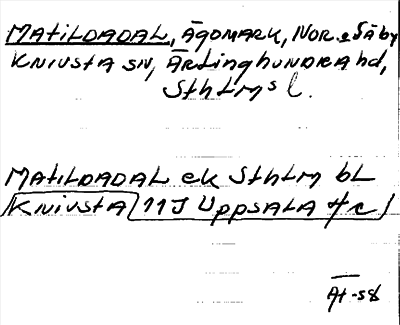 MATILDADAL, ÄGOMARK, NOR o Säby
KNIVSTA SN, ÄRLinghUNDRA hd,
SthLMs l.
MATILDADAL ek SthLM bL
KNIVSTA 11J UppSALA
ÄT-58